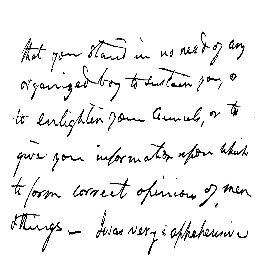 that you stand in no need of any
organized boy to sustain you, o
to enlighten your Councils, or to
give you information upon which
to form correct opinions of, men
& things — I was very apprehensive